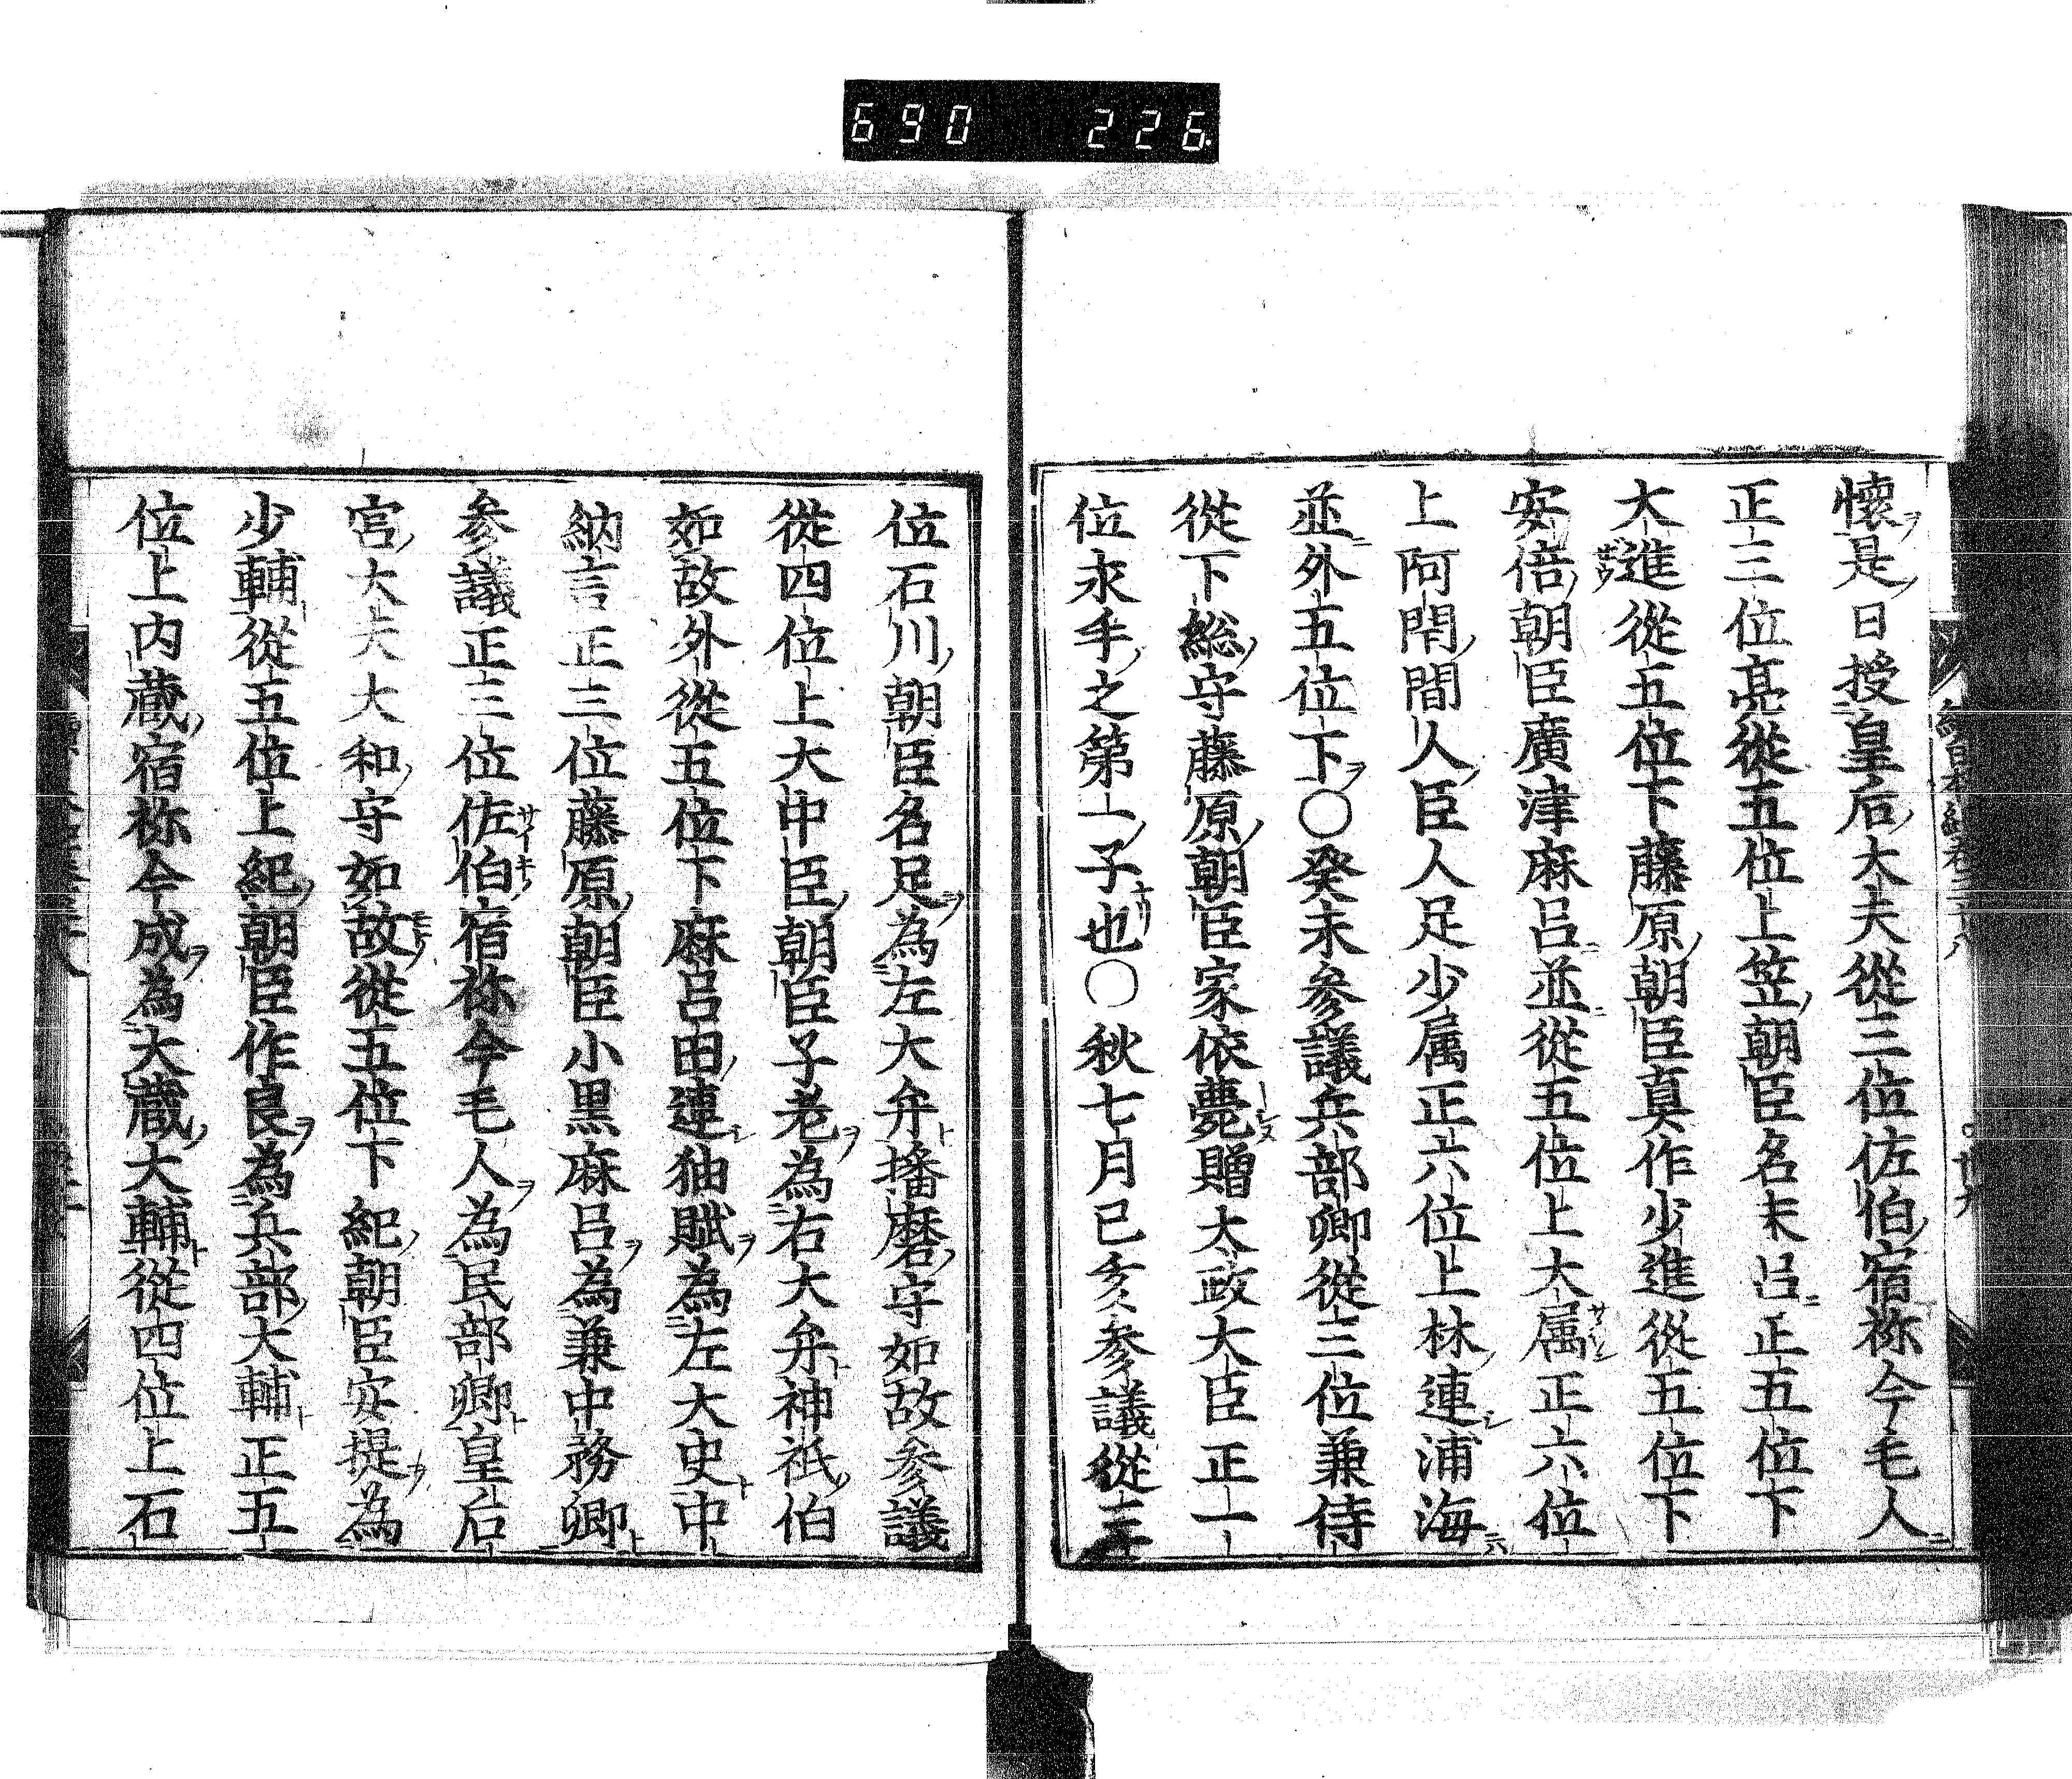 690 226
懷是日授皇后大夫從三位佐伯宿祢今毛人
正三位亮從五位上笠朝臣名末呂正五位下
大進從五位下藤原朝臣真作少進從五位下
安倍朝臣廣津麻呂並從五位上大属正六位
上阿閇間人臣人足少属正六位上林連浦海
並外五位下〇癸未參議兵部卿從三位兼侍
從下総守藤原朝臣家依薨贈太政大臣正一
位永手之第一子也〇秋七月己亥參議從三
位石川朝臣名足為左大弁播磨守如故參議
從四位上大中臣朝臣子老為右大弁神祇伯
如故外從五位下麻呂田連狎賦為左大史中
納言正三位藤原朝臣小黒麻呂為兼中務卿
参議正三位佐伯宿祢今毛人為民部卿皇后
宮大夫大和守如故從五位下紀朝臣安提為
少輔從五位上紀朝臣作良為兵部大輔正五
位上内蔵宿祢今成為大蔵大輔從四位上石